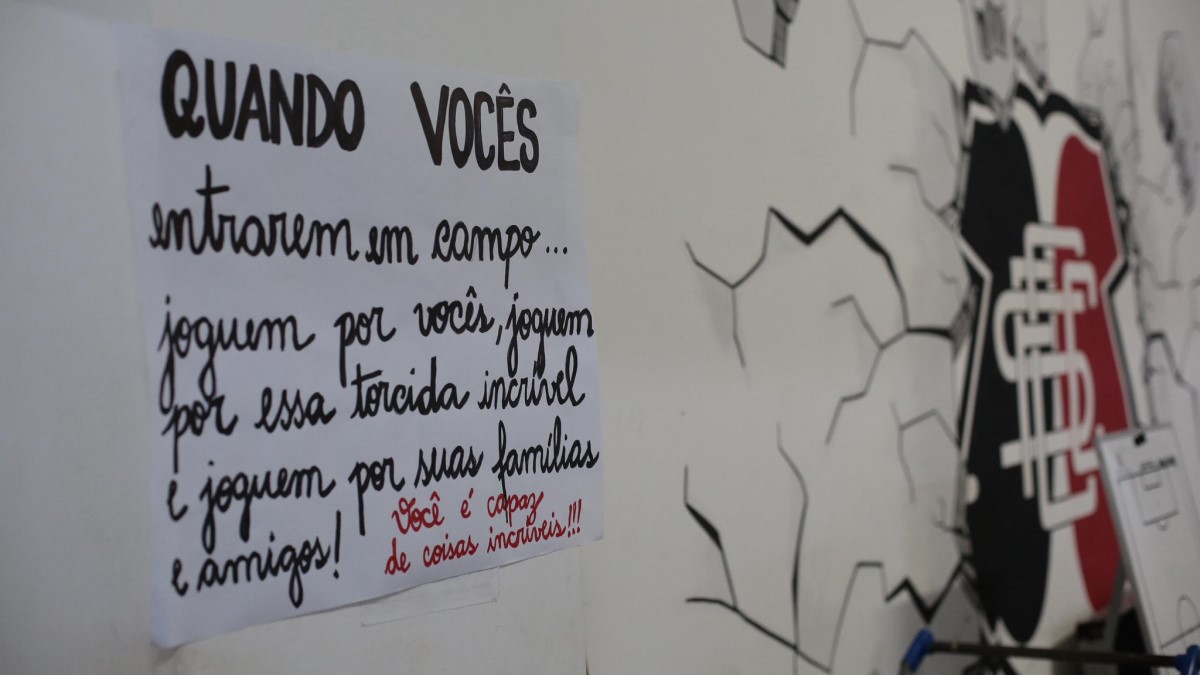 QUANDO VOCÊS
entrarem em campo...
joguem por vocês, joguem
por essa torcida incrível
e joguem por suas famílias
e amigos!
Você é capaz
de coisas incríveis!!!